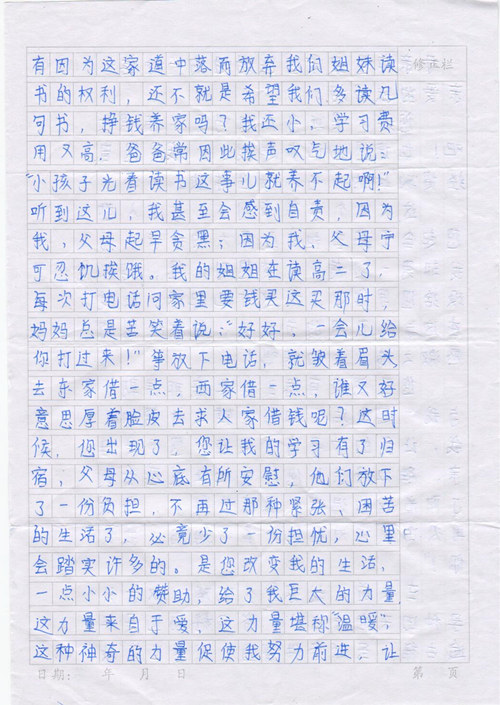 修正栏
有因为这家道中落而放弃我们姐妹读
书的权利，还不就是希望我们多读几
句书，挣钱养家吗？我还小，学习费
用又高，爸爸常因此挨声叹气地说：
“小孩子光看读书这事儿就养不起啊！”
听到这儿，我甚至会感到自责，因为
我，父母起早贪黑；因为我，父母宁
可忍饥挨饿。我的姐姐在读高二了，
每次打电话问家里要钱买这买那时，
妈妈总是苦笑着说：“好好，一会儿给
你打过来！”等放下电话，就皱着眉头
去东家借一点，西家借一点，谁又好
意思厚着脸皮去求人家借钱呢？这时
候，您出现了，您让我的学习有了归
宿，父母从心底有所安慰，他们放下
了一份负担，不再过那种紧张、困苦
的生活了，必竟少了一份担忧，心里
会踏实许多的。是您改变我的生活，
一点小小的赞助，给了我巨大的力量，
这力量来自于爱，这力量堪称“温暖”，
这种神奇的力量促使我努力前进，让
日期： 年 月 日 第 页